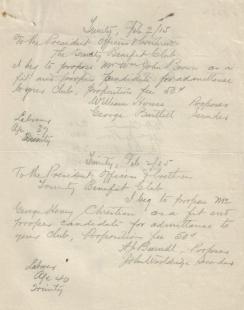 Trinity, Feb 2/25
To the President Officers & Brethren
The Trinity Benefit Club
I beg to propose Mr Wm John Brown as a
fit and proper candidate for admittance
to your Club, proposition fee 50¢
William Proposer
George Seconder
Laborer
Age 37
Trinity
Trinity, Feb 2/25
To the President Officers & Brethren
Trinity Benefit Club
I beg to propose Mr
George Henry Christian as a fit and
proper candidate for admittance to
your Club, Proposition fee 50¢
Proposer
John Seconder
Labor
Age 40
Trinity